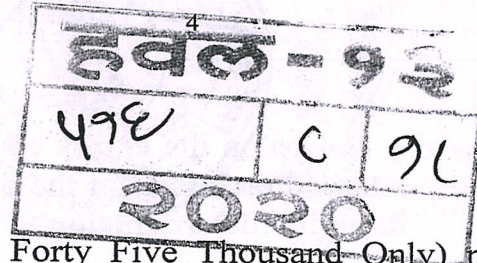 4
हवल - १३
५१६ ८ १८
२०२०
Forty Five Thousand Only)